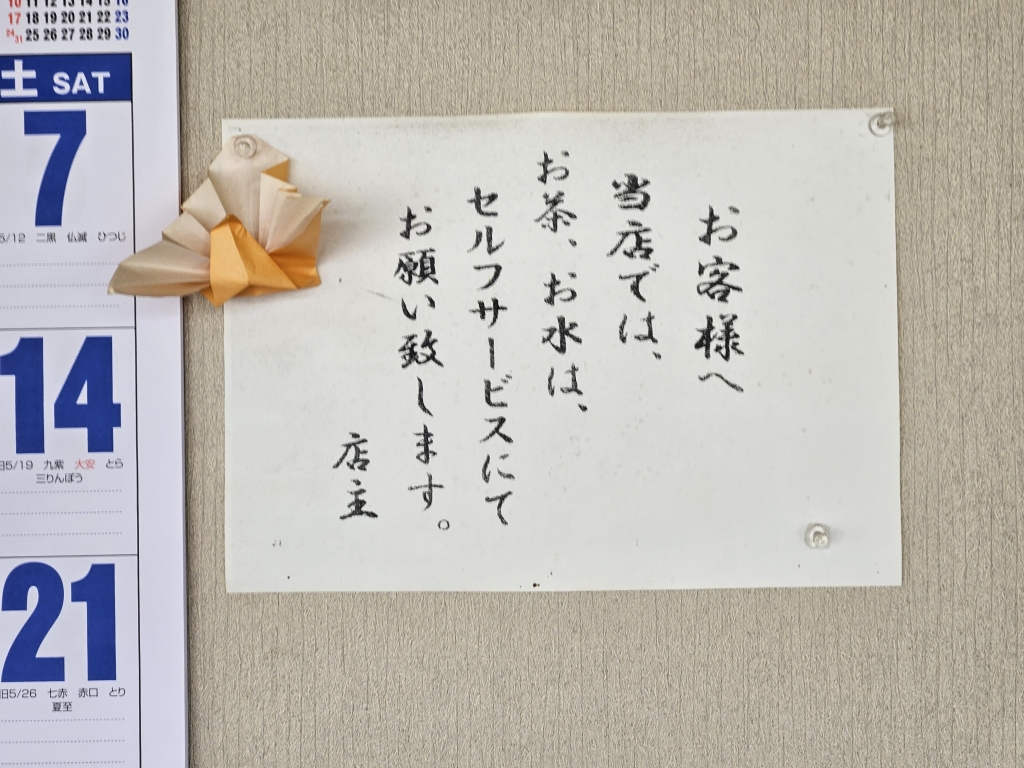 お客様へ
当店では、
お茶、お水は、
セルフサービスにて
お願い致します。
店主
17 18 19 20 21 22 23
24/31 25 26 27 28 29 30
土 SAT
7
5/12 二黒 仏滅 ひつじ
14
旧5/19 九紫 大安 とら
三りんぼう
21
旧5/26 七赤 赤口 とり
夏至